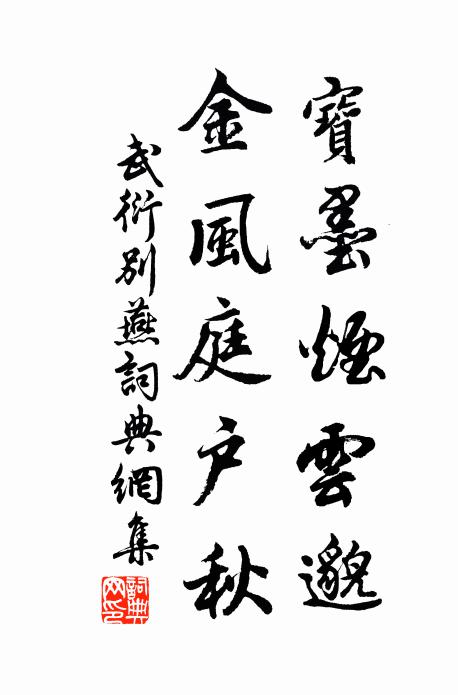 寶墨煙雲邈
金風庭户秋
武衍别燕詞典網集
詞典網印